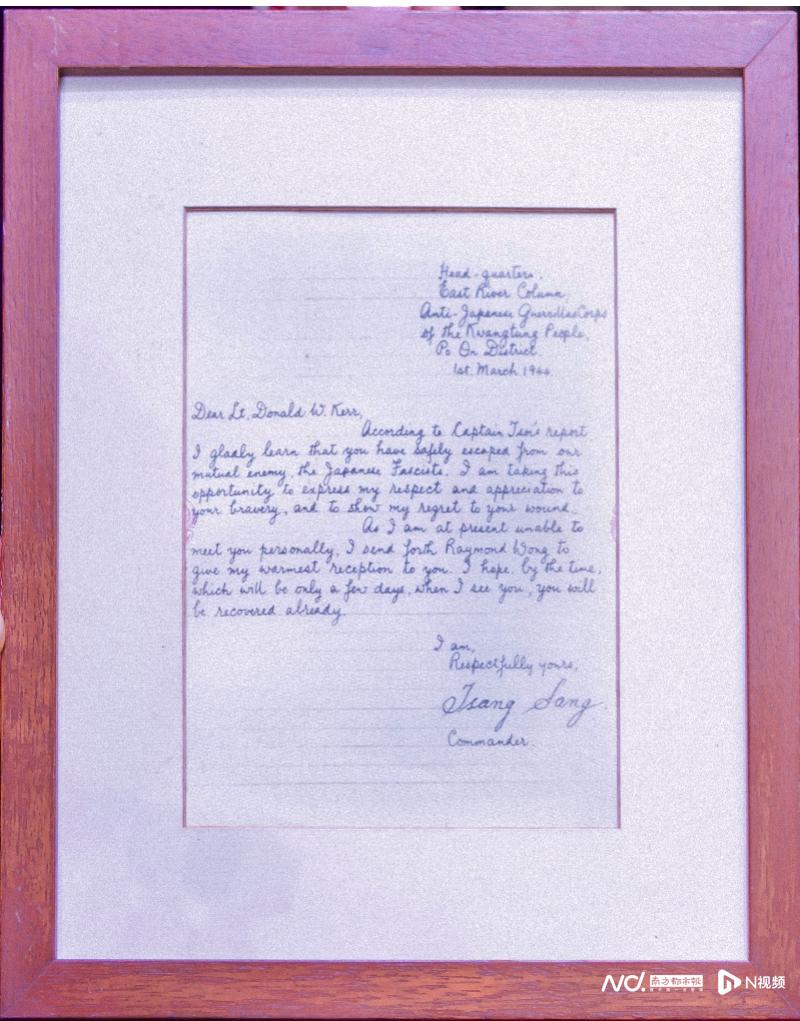 Head-quarters,
East River Column,
Anti-Japanese Guerrillas Corps
of the Kwangtung People,
Po On District.
1st. March 1944
Dear Lt. Donald W. Kerr,
According to Captain Tso's report
I gladly learn that you have safely escaped from our
mutual enemy, the Japanese Fascists. I am taking this
opportunity to express my respect and appreciation to
your bravery, and to show my regret to your wound.
As I am at present unable to
meet you personally, I send forth Raymond Wong to
give my warmest reception to you. I hope, by the time,
which will be only a few days, when I see you, you will
be recovered already.
I am,
Respectfully yours,
Tsang Sang
Commander.
南方都市报
N视频